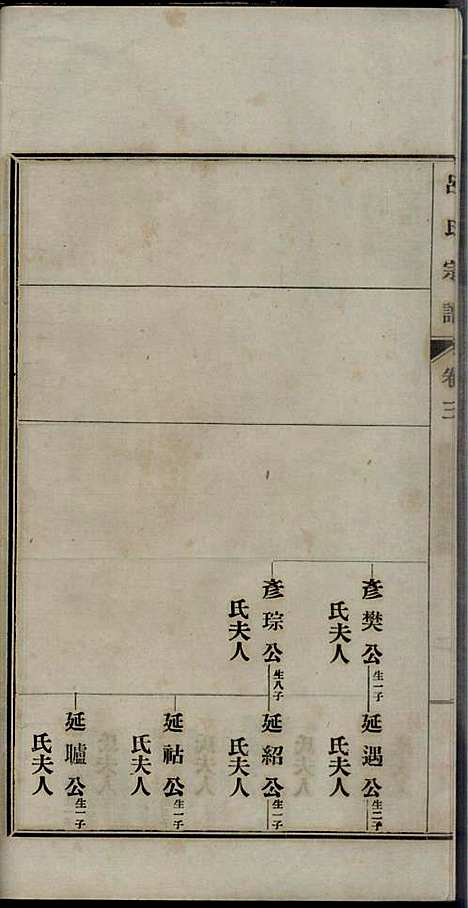 呂氏宗譜
卷三
彥樊公生一子
氏夫人
彥琮公生八子
氏夫人
延遇公生二子
氏夫人
延紹公生一子
氏夫人
延祜公生一子
氏夫人
延矑公生一子
氏夫人